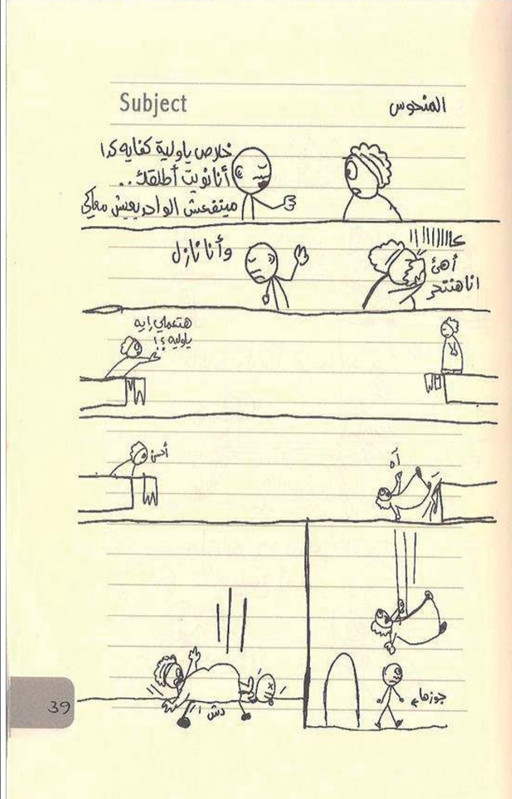 Subject
المنحوس
خلاص ياولية كفايه كدا
أنا نويت أطلقك..
مينفعش الواحد يعيش معاكي
عااااااااا
أهئ
انا هنتحر
وأنا نازل
هتعملي إيه
ياوليه؟!
أحسن
آه
جوزها
دش!
39